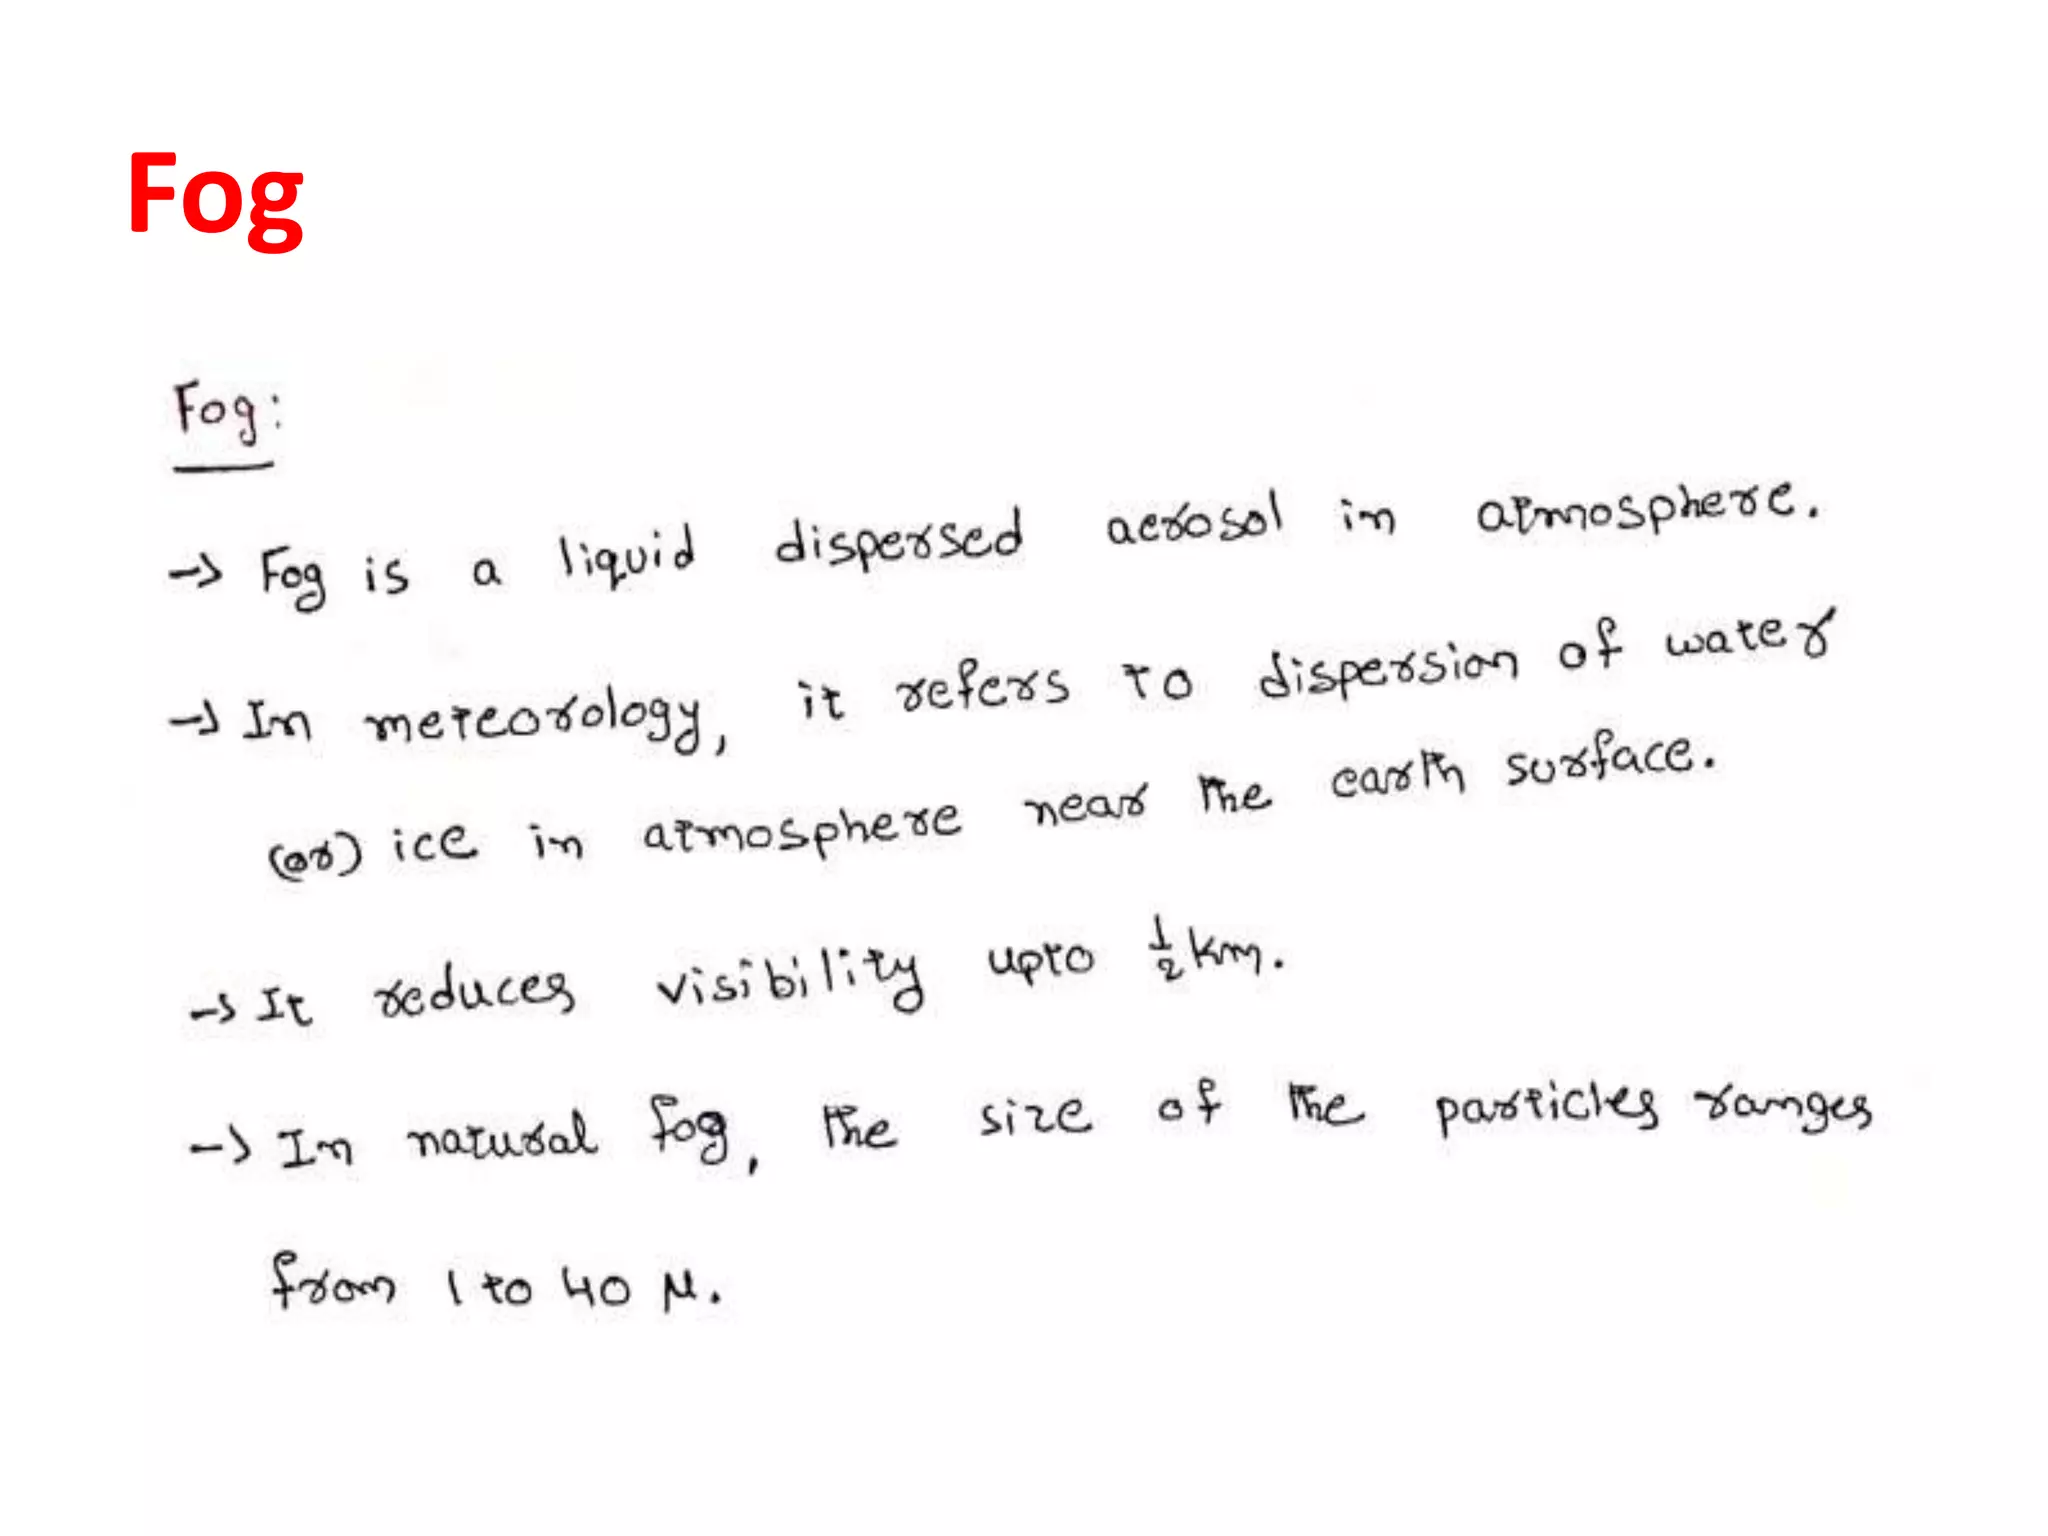 Fog
Fog:
→ Fog is a liquid dispersed aerosol in atmosphere.
→ In meteorology, it refers to dispersion of water
(or) ice in atmosphere near the earth surface.
→ It reduces visibility upto 1/2 km.
→ In natural fog, the size of the particles ranges
from 1 to 40 μ.